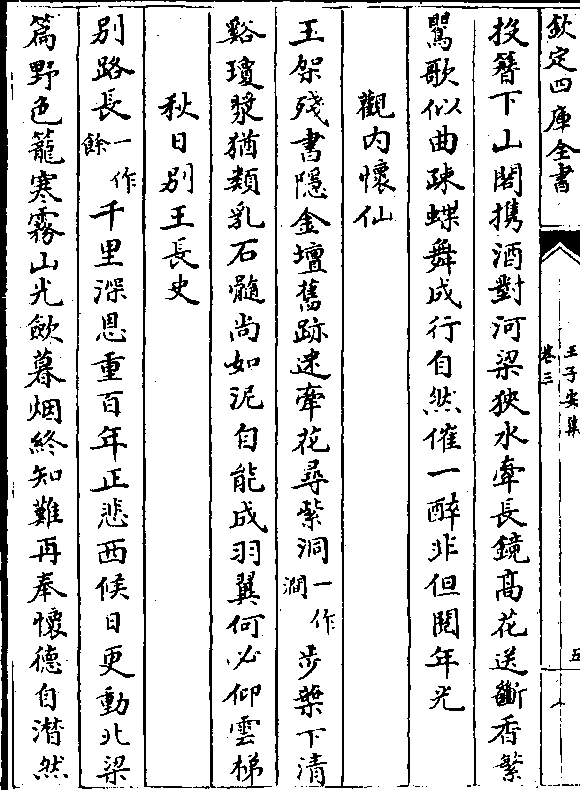 欽定四庫全書
王子安集
卷三
五
投簪下山閣携酒對河梁狹水牽長鏡高花送斷香繁
鸎歌似曲疎蝶舞成行自然催一醉非但閱年光
觀内懷仙
玉架殘書隠金壇舊跡迷牽花尋紫洞一作澗歩葉下清
谿瓊漿猶類乳石髓尚如泥自能成羽翼何必仰雲梯
秋日别王長史
别路長一作餘千里深恩重百年正悲西候日更動北梁
篇野色籠寒霧山光斂暮烟終知難再奉懐德自潸然